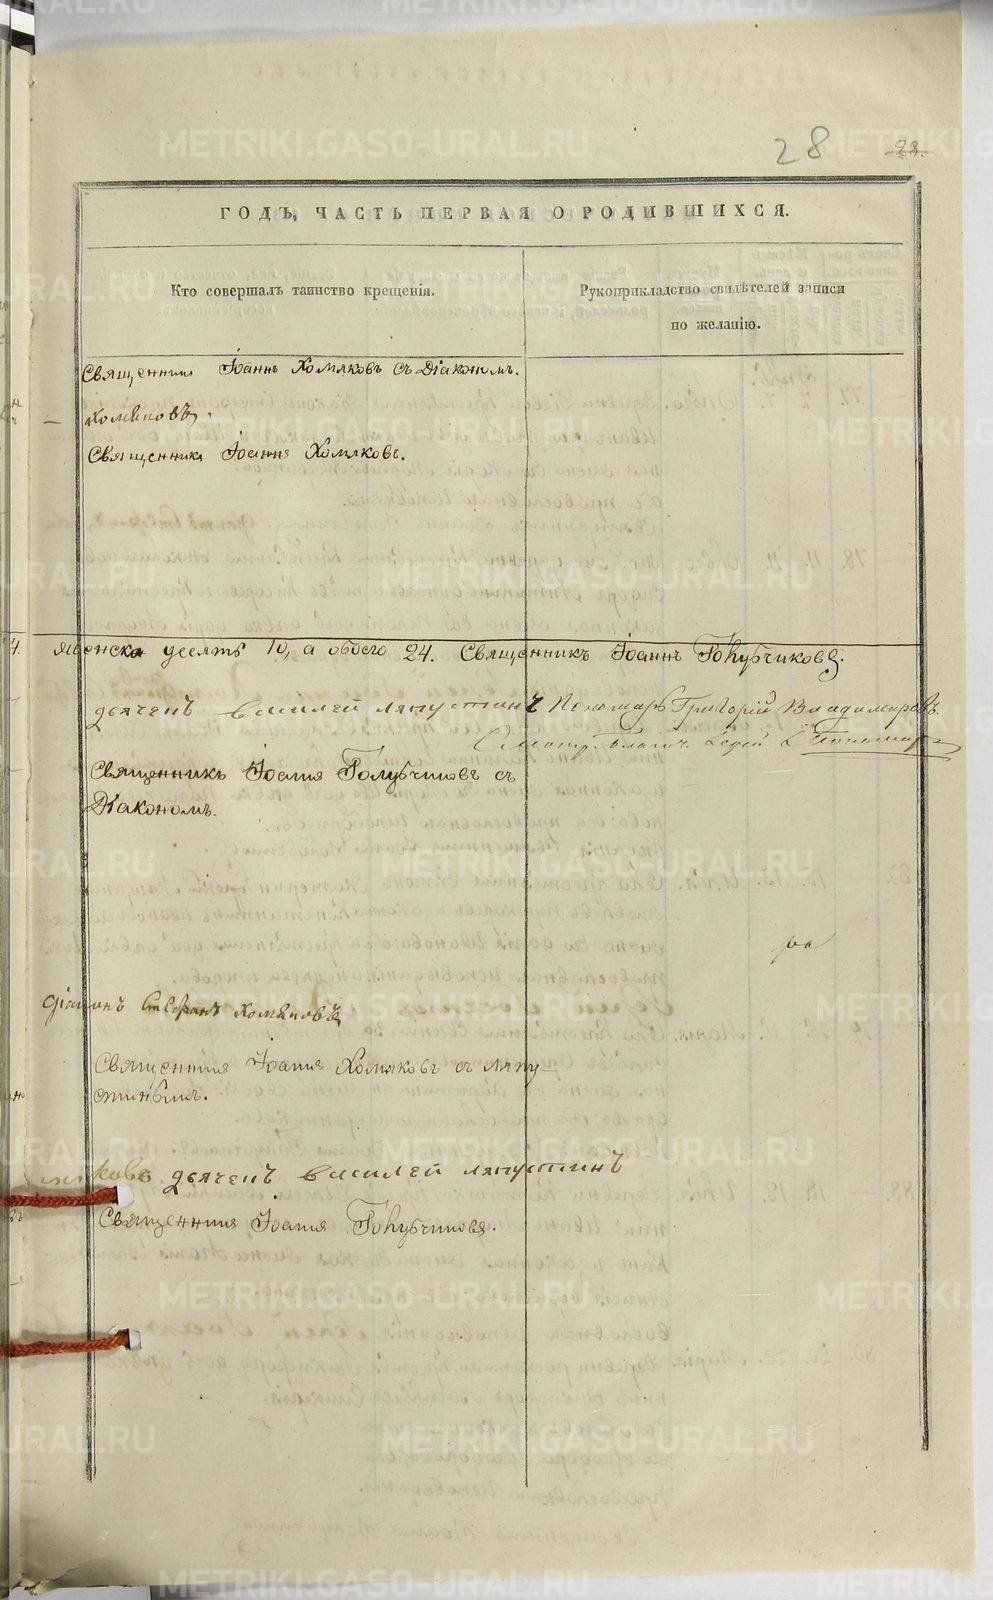 28 28.
ГОДЪ, ЧАСТЬ ПЕРВАЯ О РОДИВШИХСЯ.
Кто совершалъ таинство крещенія.
Рукоприкладство свидѣтелей записи
по желанію.
Священникъ Іоаннъ Хомяковъ съ Діакономъ.
Хомяковъ.
Священникъ Іоаннъ Хомяковъ.
женска десять 10, а обоего 24. Священникъ Іоаннъ Голубчиковъ.
дьячекъ василей ляпустинъ Пономарь Григорій Владимировъ.
Священникъ Іоаннъ Голубчиковъ съ
Діакономъ.
діаконъ Стефанъ Хомяковъ
Священникъ Іоаннъ Хомяковъ съ ляпу-
стинымъ.
дьячекъ василей ляпустинъ
Священникъ Іоаннъ Голубчиковъ.
METRIKI.GASO-URAL.RU